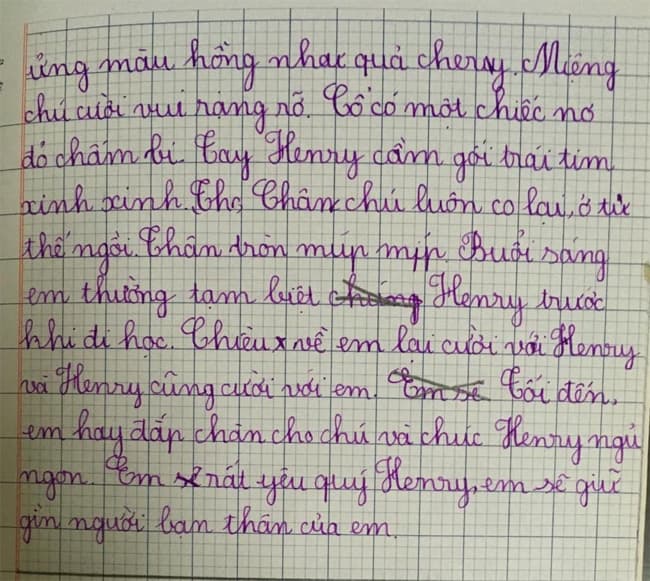 ửng màu hồng như quả cherry. Miệng
chú cười vui rạng rỡ. Cổ có một chiếc nơ
đỏ chấm bi. Tay Henry cầm gói trái tim
xinh xinh. Chg Chân chú luôn co lại, ở tư
thế ngồi. Thân tròn múp míp. Buổi sáng
em thường tạm biệt chúng Henry trước
khi đi học. Chiều x về em lại cười với Henry
và Henry cũng cười với em. Em sẽ Tối đến,
em hay đắp chăn cho chú và chúc Henry ngủ
ngon. Em sẽ rất yêu quý Henry, em sẽ giữ
gìn người bạn thân của em.